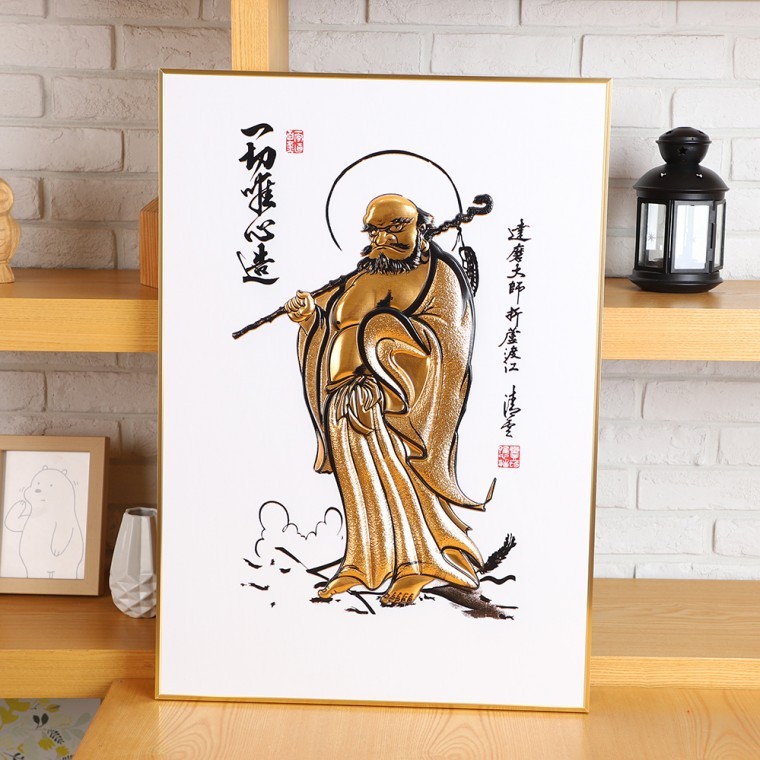 達磨大師折蘆渡江
清雲
一切唯心造